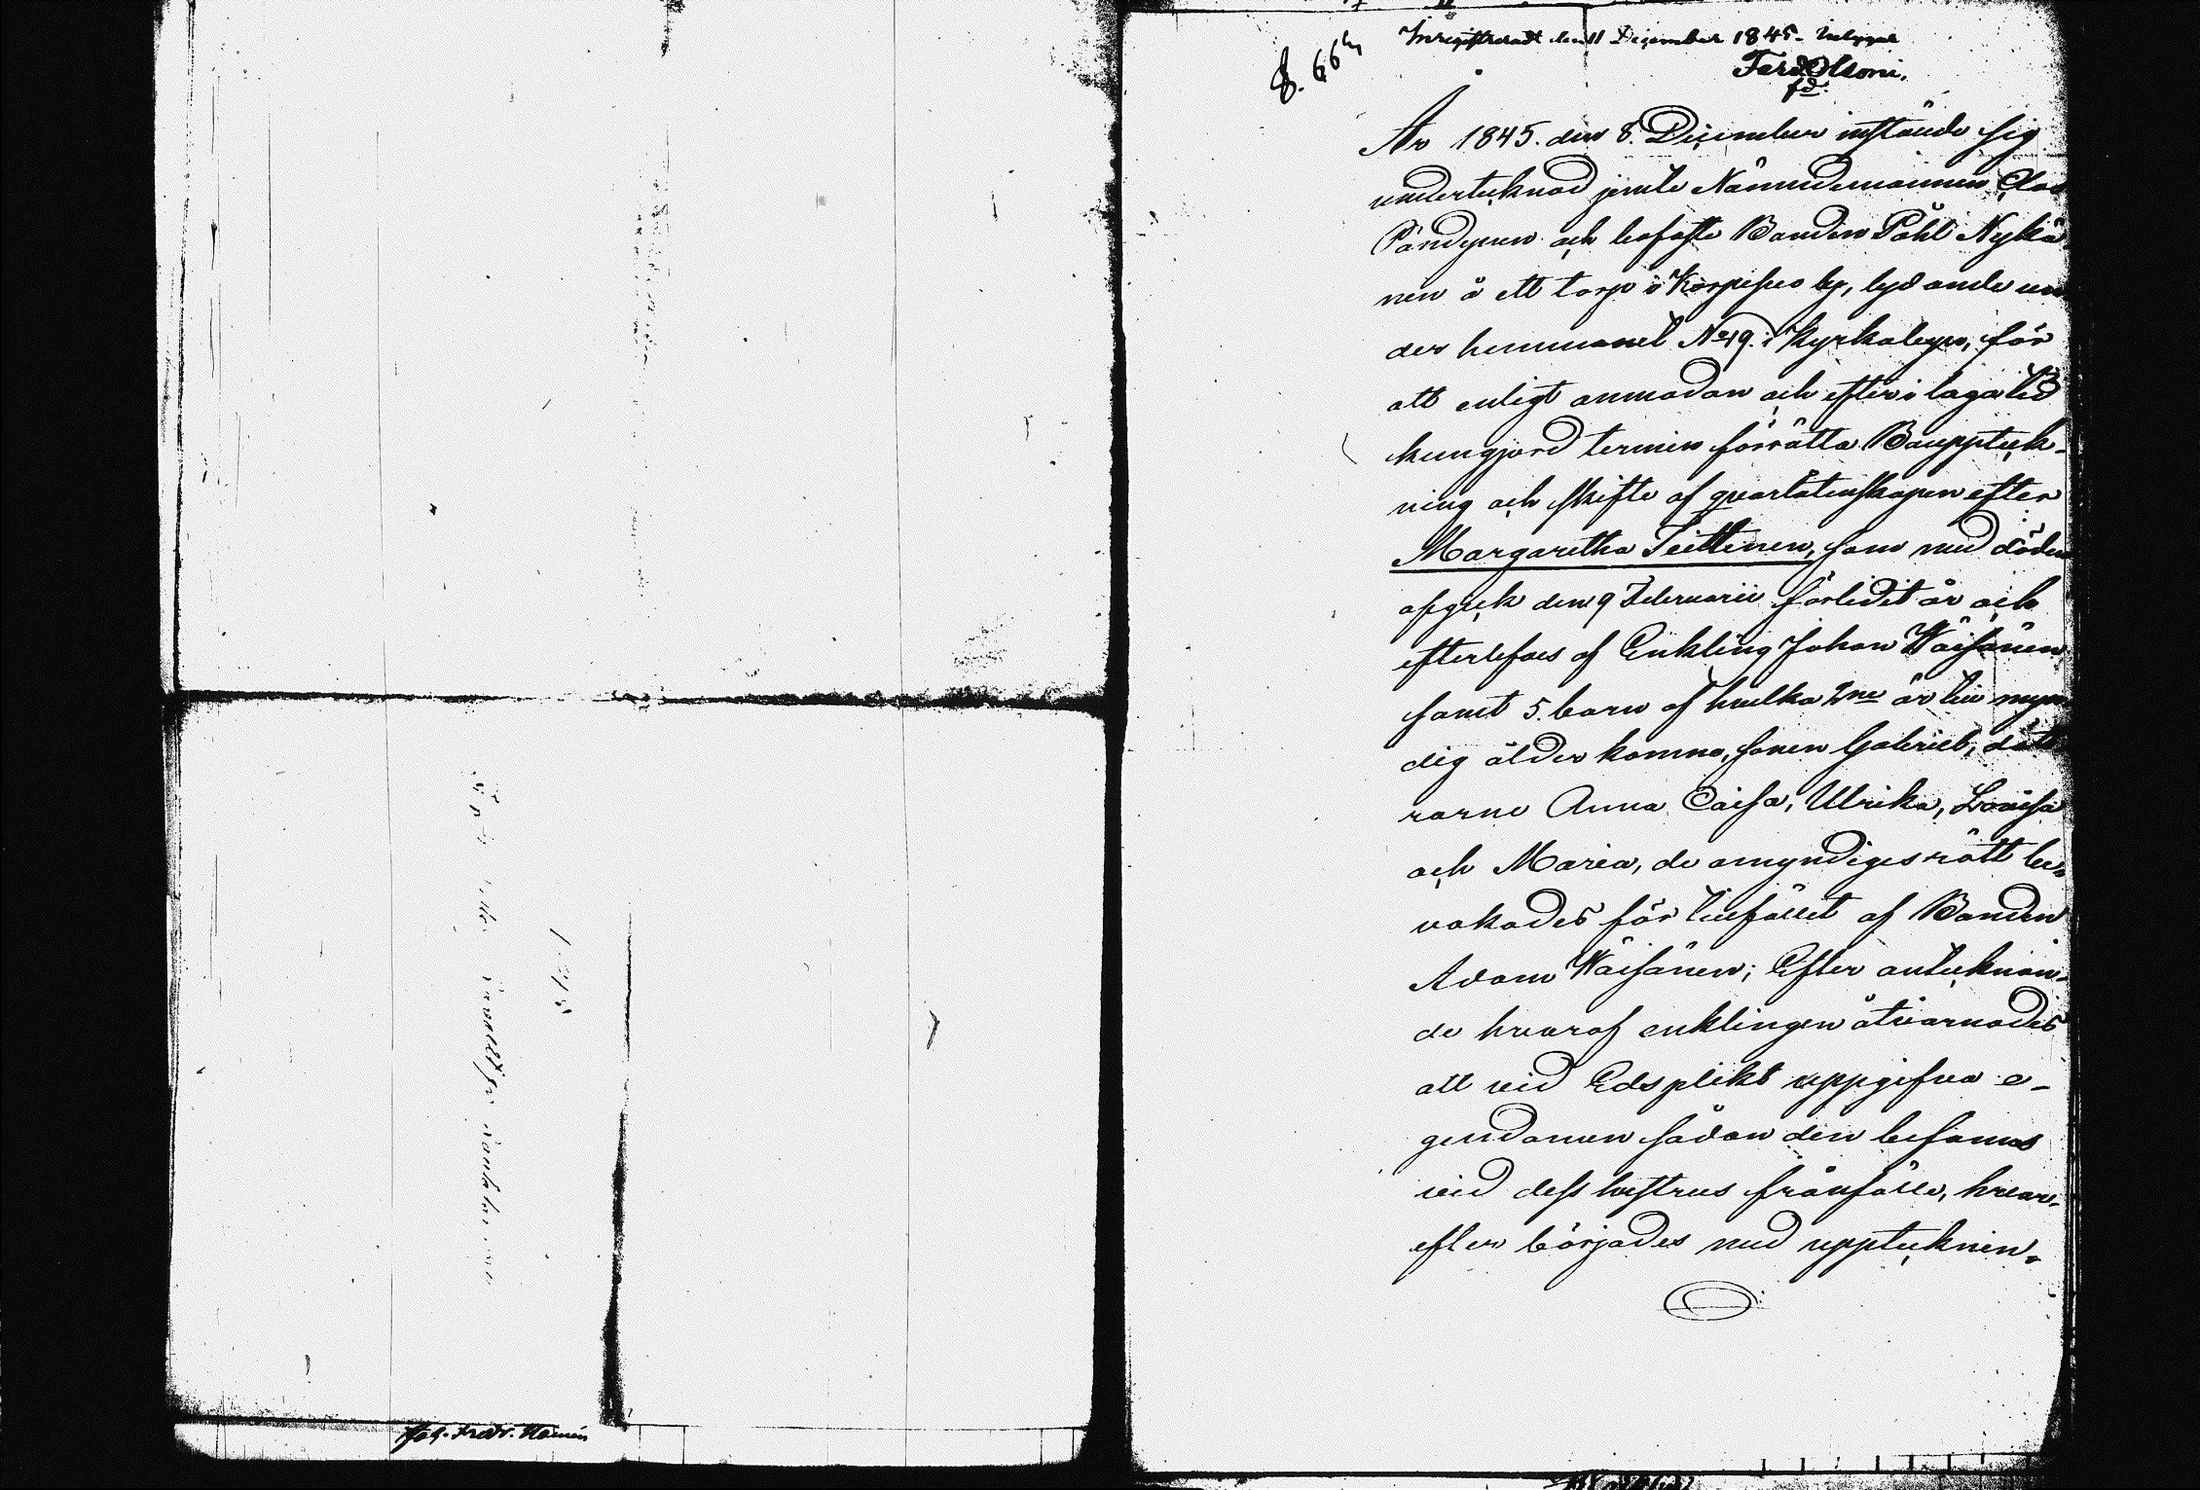 Inregistreradt den 11 December 1845.
År 1845. den 8. December instälde sig
undertecknad jemte Nämndemannen Clas
Pöndynen och besofte Bonden Påhl Nykä
nen å ett torp i Korpisuo by, lydande un
der hemmanet No 19. i Kyrkobyn, för
att enligt anmodan och efter i laga tid
kungjord termin förrätta Bouppteck-
ning och skifte af qvarlåtenskapen efter
Margaretha Teittinen, som med döden
afgick den 9 Februarii förledit år och
efterlefves af Enkling Johan Wäisänen
samt 5. barn af hvilka 2ne är till myn
dig ålder komne, sonen Gabriel, dött
rarne Anna Caisa, Ulrika, Lovisa
och Maria, de omyndiges rätt be-
vakades för tillfället af Bonden
Adam Wäisänen; Efter antecknan-
de hvaraf enklingen åtvarnades
att vid Edsplikt uppgifva e-
gendomen sådan den befanns
vid dess hustrus frånfälle, hvar-
efter börjades med upptecknin-